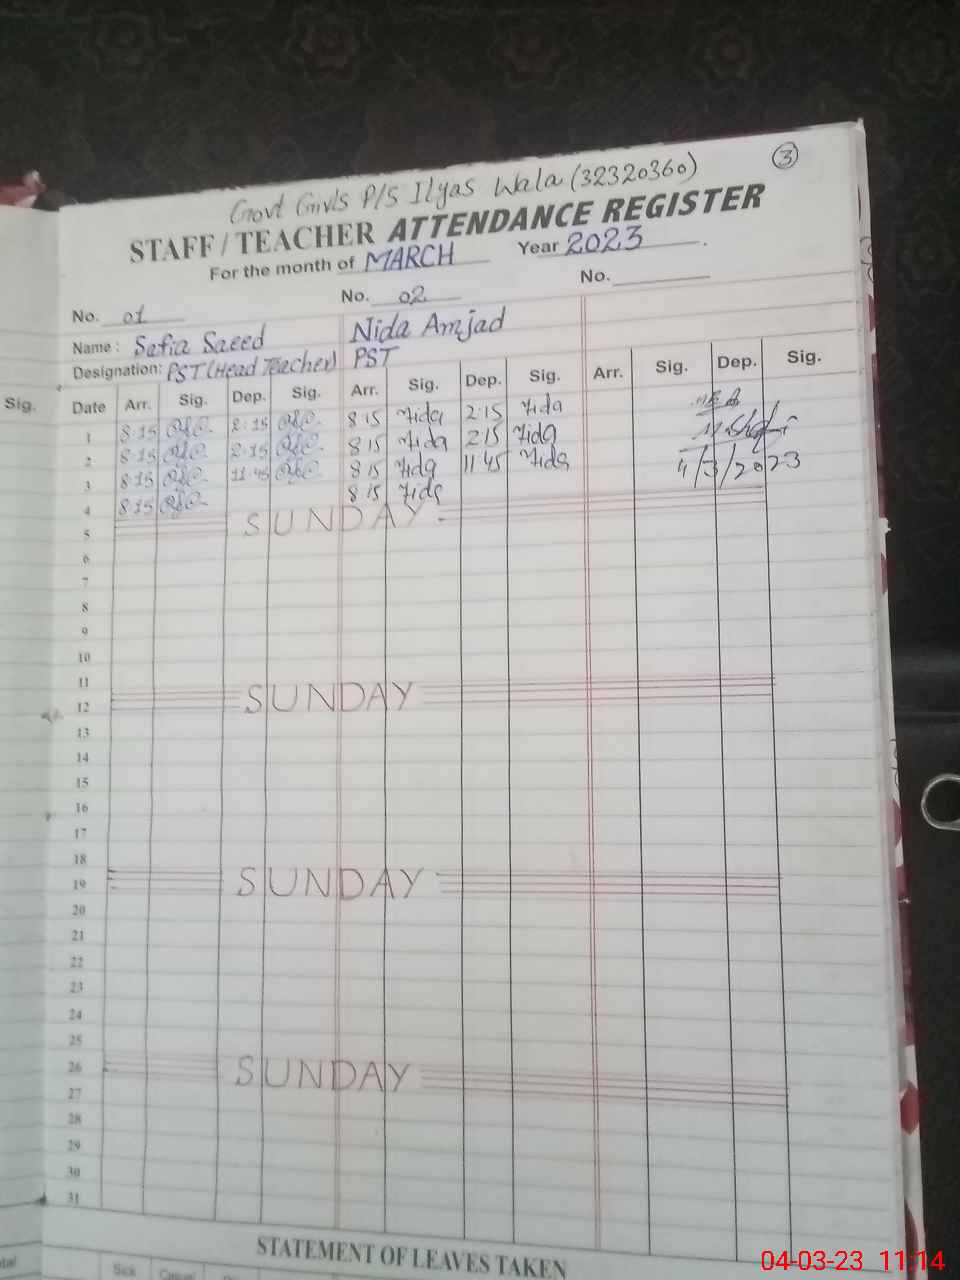 3
Govt Girls P/S Ilyas Wala (32320360)
STAFF / TEACHER ATTENDANCE REGISTER
For the month of MARCH Year 2023
No. 01 No. 02 No.
Name: Safia Saeed Nida Amjad
Designation: PST (Head Teacher) PST
Sig. Date Arr. Sig. Dep. Sig. Arr. Sig. Dep. Sig. Arr. Sig. Dep. Sig.
1 8:15 2:15 8:15 Nida 2:15 Nida
2 8:15 2:15 8:15 Nida 2:15 Nida
3 8:15 11:45 8:15 Nida 11:45 Nida 4/3/2023
4 8:15 8:15 Nida
5 SUNDAY
6
7
8
9
10
11
12 SUNDAY
13
14
15
16
17
18
19 SUNDAY
20
21
22
23
24
25
26 SUNDAY
27
28
29
30
31
STATEMENT OF LEAVES TAKEN
Sick Casual
04-03-23 11:14